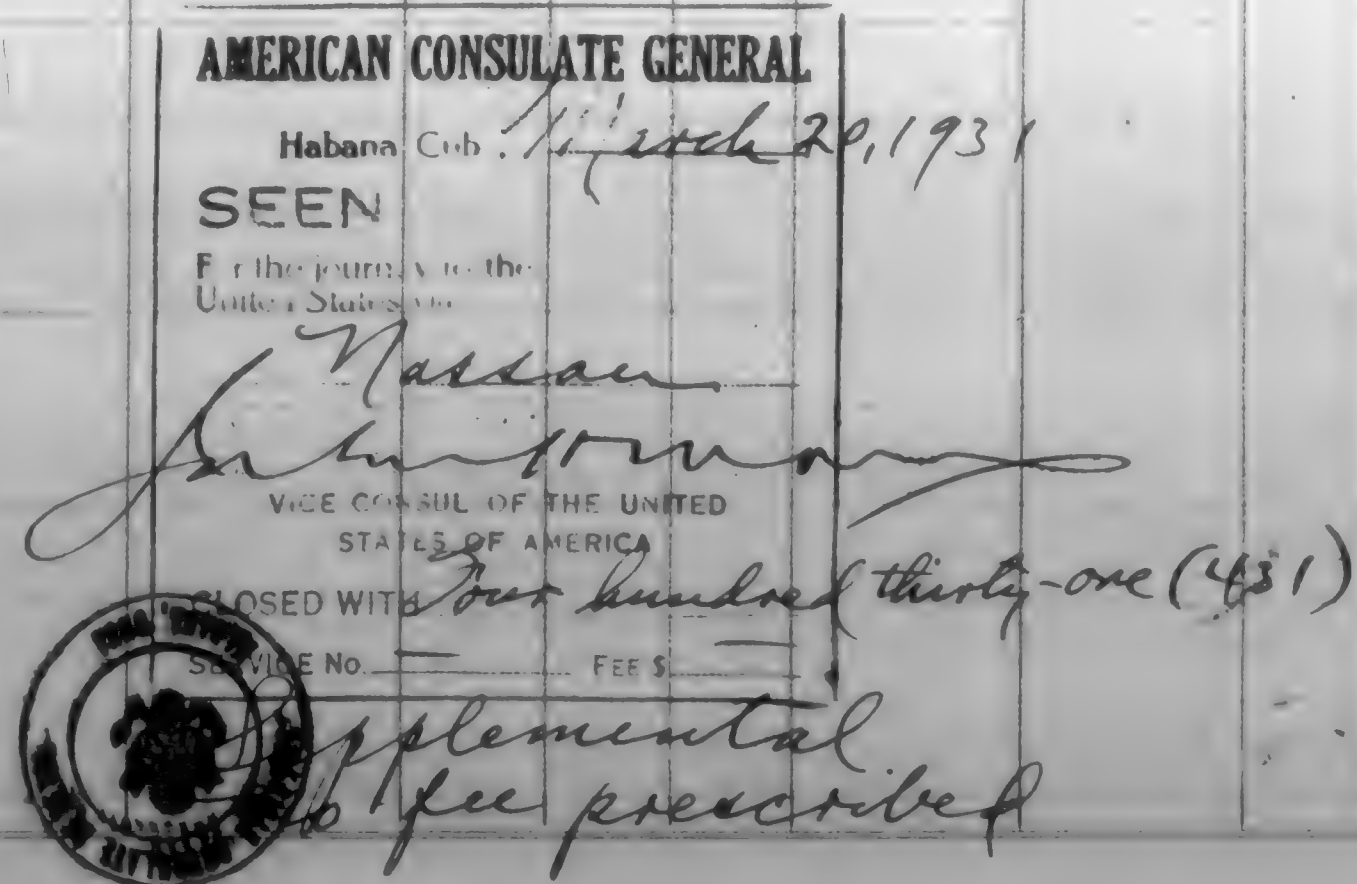 AMERICAN CONSULATE GENERAL
Habana Cub March 20, 1931
SEEN
F r the journey to the
United States via
Nassau
VICE CONSUL OF THE UNITED
STATES OF AMERICA
CLOSED WITH Four hundred thirty-one (431)
SERVICE No. — FEE $ —
Supplemental
No fee prescribed